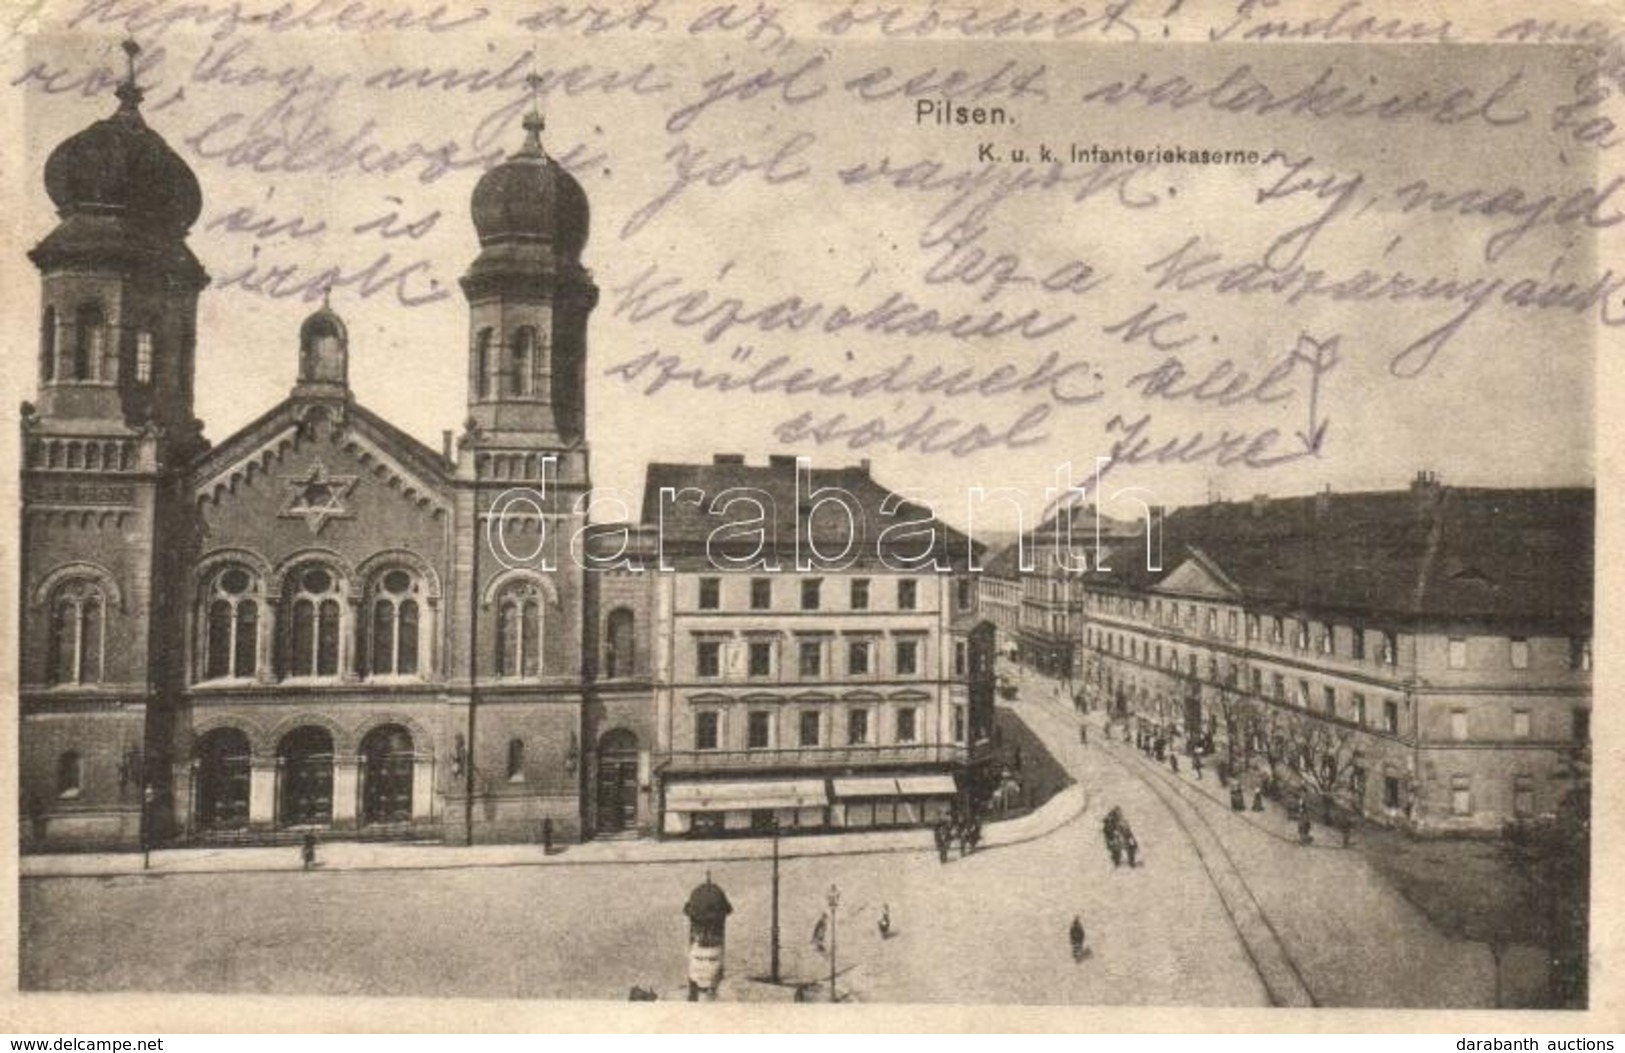 képzelem azt az örömet! Tudom
ról, hogy milyen jól esett valakivel ta
Pilsen.
K. u. k. Infanteriekaserne.
lálkozni. Jól vagyok. Így, majd
én is
írok.
Ez a kaszárnyánk
Kézcsókom k.
szüleidnek. ölel
csókol Imre
darabanth
www.delcampe.net
darabanth auctions